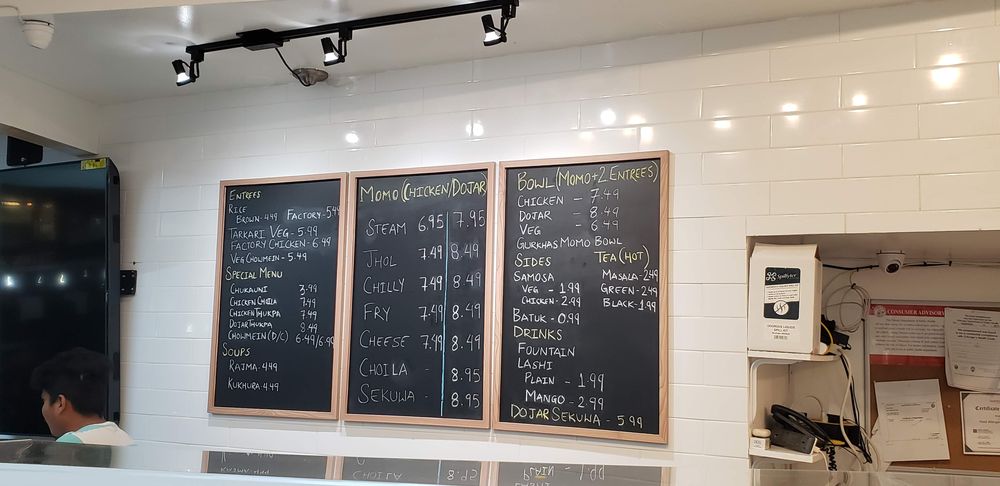 ENTREES
RICE
BROWN-4.49 FACTORY-5.49
TARKARI VEG-5.99
FACTORY CHICKEN-6.49
VEG CHOWMEIN-5.49
SPECIAL MENU
CHUKAUNI 3.99
CHICKEN CHOILA 7.49
CHICKEN THUKPA 7.49
DOJAR THUKPA 8.49
CHOWMEIN (D/C) 6.49/6.99
SOUPS
RAJMA-4.49
KUKHURA-4.49
MOMO (CHICKEN/DOJAR)
STEAM 6.95 7.95
JHOL 7.49 8.49
CHILLY 7.49 8.49
FRY 7.49 8.49
CHEESE 7.99 8.49
CHOILA - 8.95
SEKUWA - 8.95
BOWL (MOMO+2 ENTREES)
CHICKEN - 7.49
DOJAR - 8.49
VEG - 6.49
GURKHAS MOMO BOWL
SIDES
SAMOSA
VEG - 1.99
CHICKEN-2.99
BATUK-0.99
TEA (HOT)
MASALA-2.49
GREEN-2.49
BLACK-1.99
DRINKS
FOUNTAIN
LASHI
PLAIN - 1.99
MANGO - 2.99
DOJAR SEKUWA - 5.99
SpillFyter
SPILL KIT
CONSUMER ADVISORY
Certificate